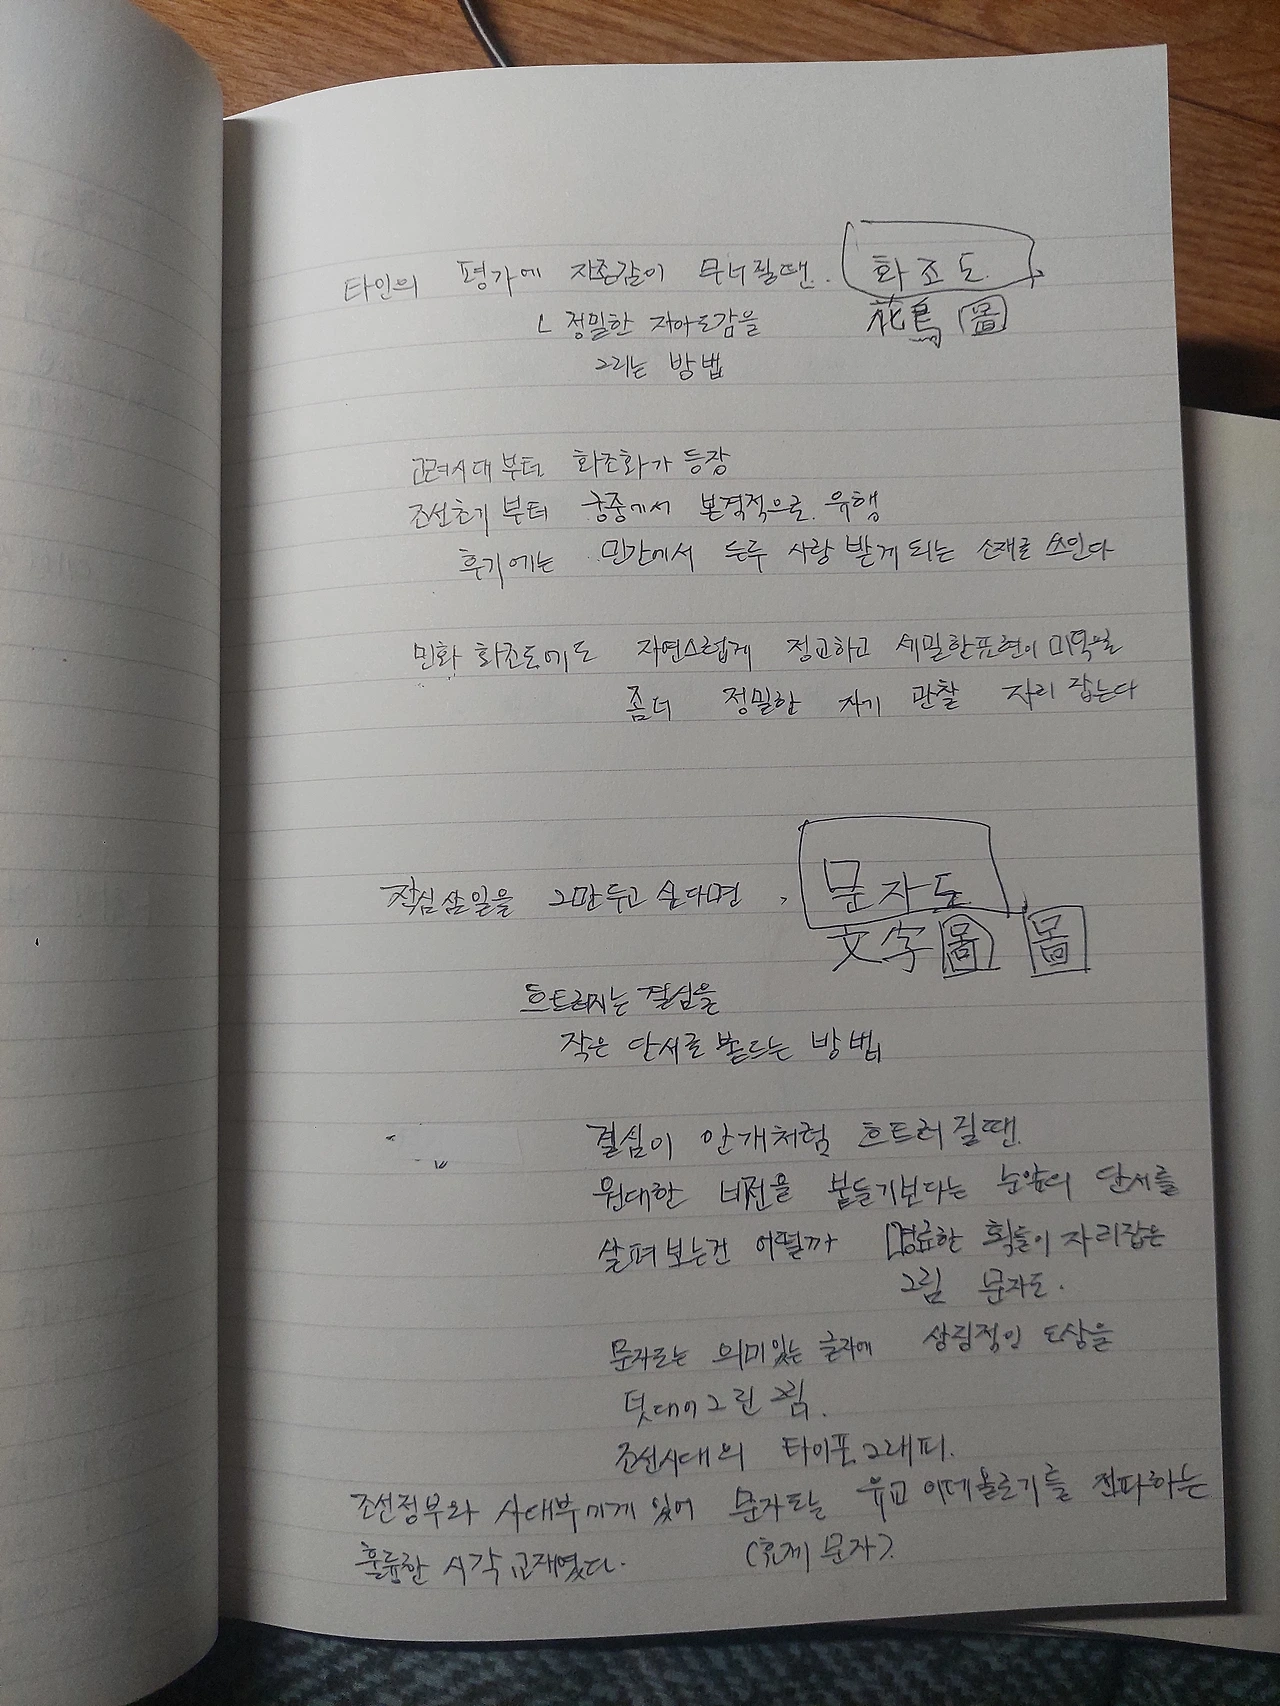 타인의 평가에 자존감이 무너질땐. 화조도.
花鳥圖
ㄴ 정밀한 자아도감을
그리는 방법
고려시대부터 화조화가 등장
조선초기부터 궁중에서 본격적으로 유행
후기에는 민간에서 두루 사랑 받게 되는 소재로 쓰인다
민화 화조도에도 자연스럽게 정교하고 세밀한표현이 미덕으로
좀더 정밀한 자기 관찰 자리 잡는다
작심삼일을 그만두고 싶다면, 문자도
文字圖 圖
흐트러지는 결심을
작은 단서로 붙드는 방법
결심이 안개처럼 흐트러질땐
원대한 비전을 붙들기보다는 눈앞의 단서를
살펴보는건 어떨까 명료한 획들이 자리잡은
그림 문자도.
문자도는 의미있는 글자에 상징적인 도상을
덧대어 그린 그림.
조선시대의 타이포그래피.
조선정부와 사대부에게 있어 문자도는 유교 이데올로기를 전파하는
훌륭한 시각교재였다. (효제 문자).